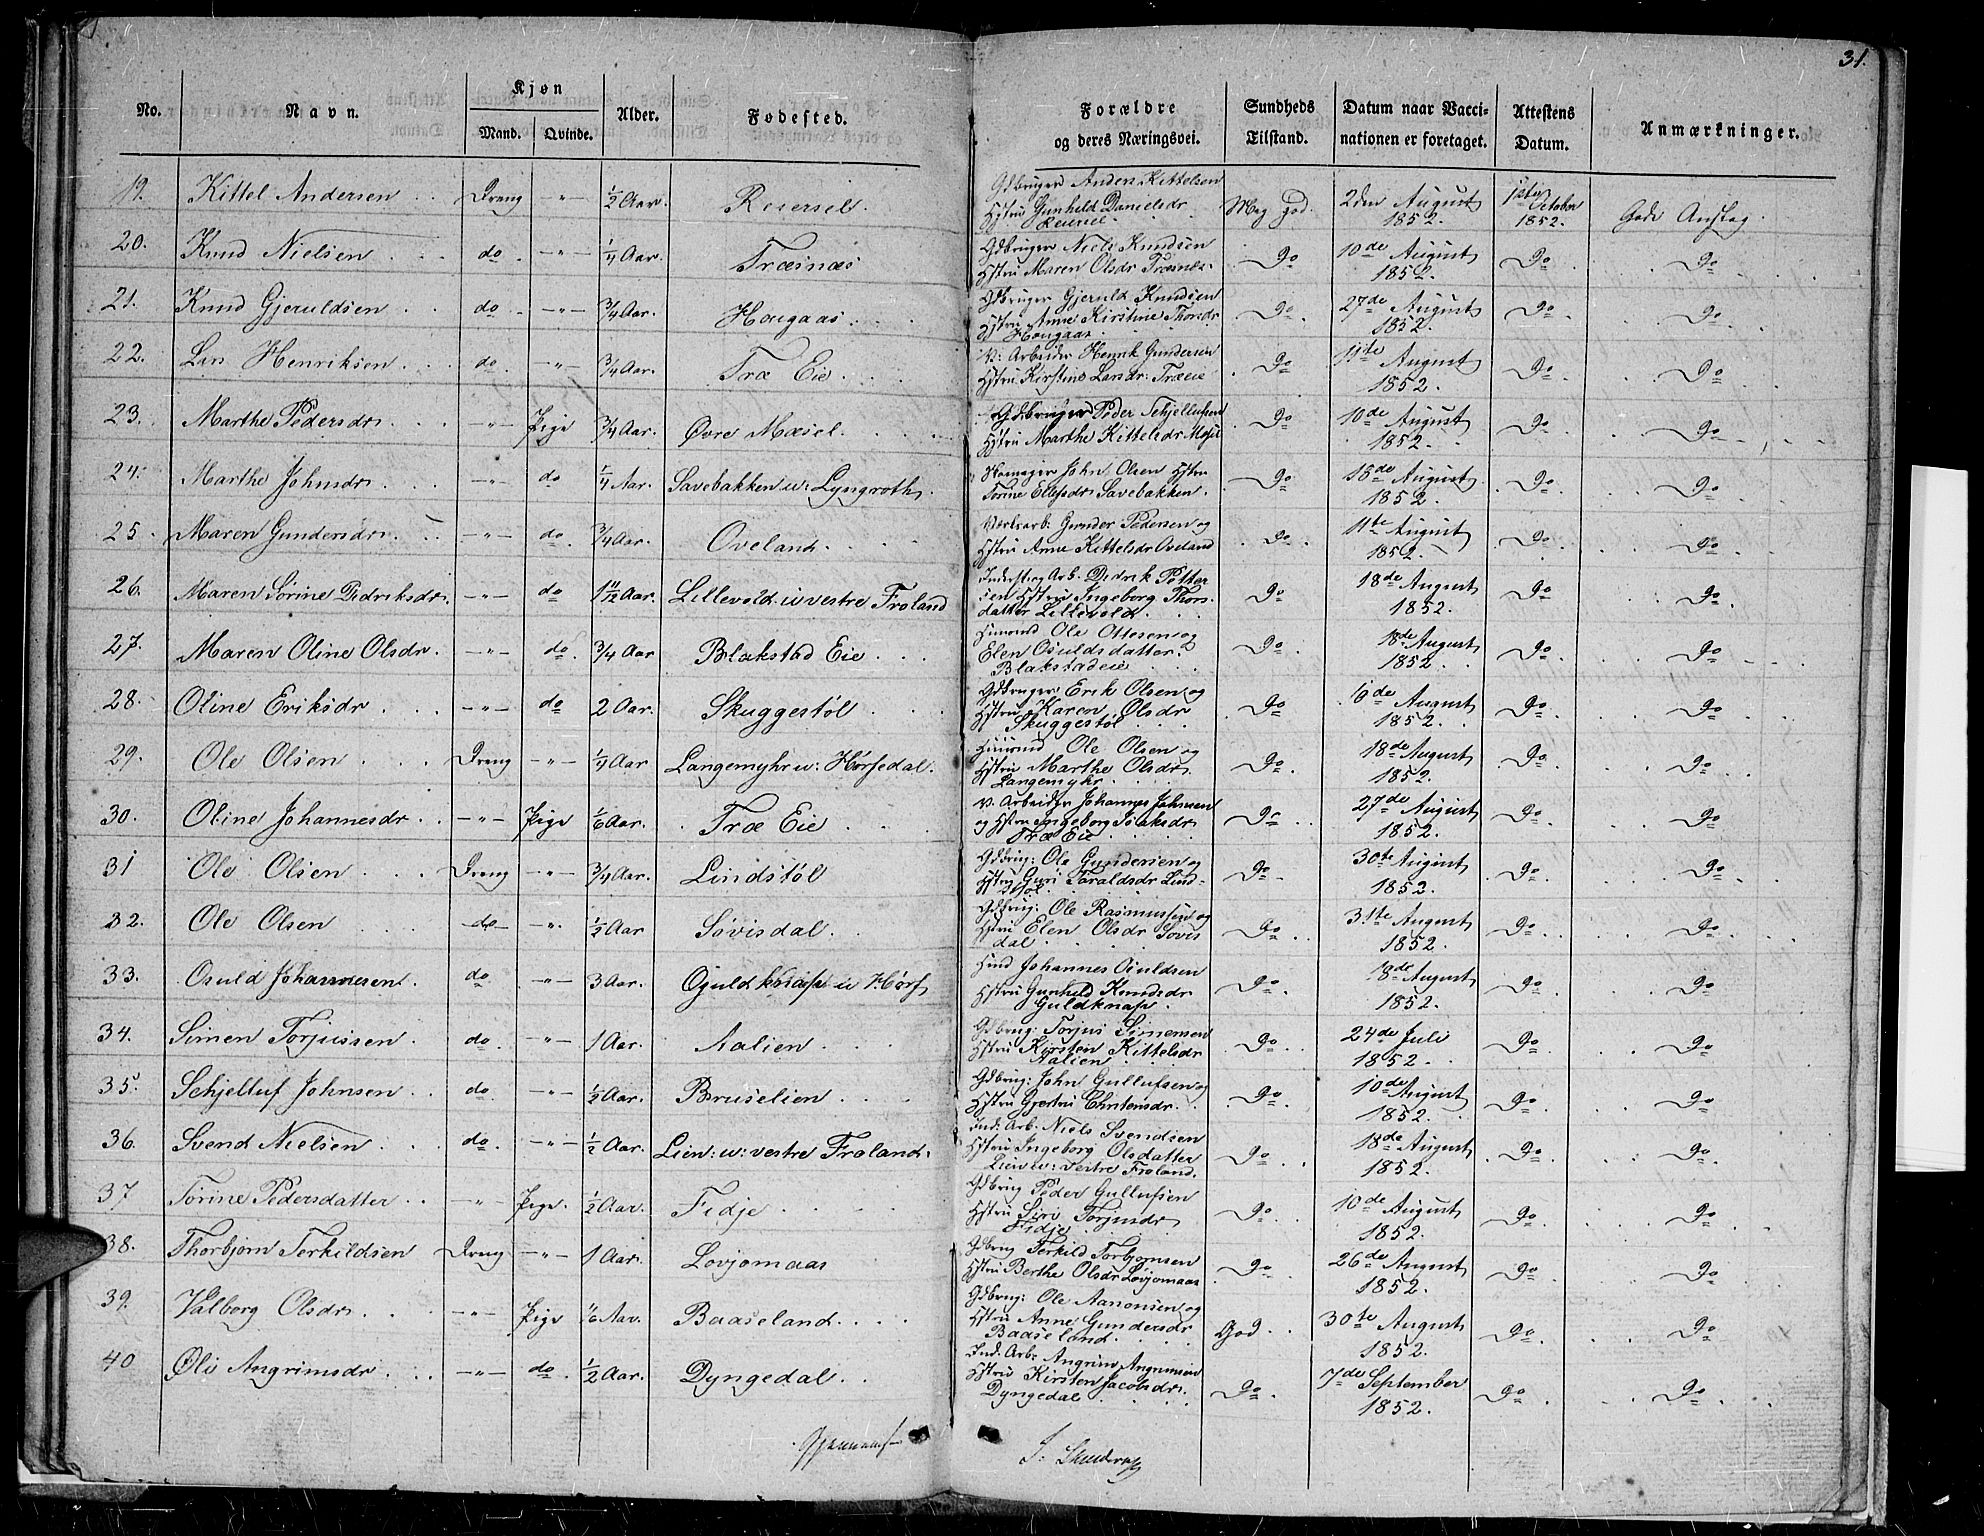 31.
No. Navn. Kjøn Alder. Fødested. Forældre Sundheds Datum naar Vacci- Attestens Anmærkninger.
Mand. Qvinde. og deres Næringsvei. Tilstand. nationen er foretaget. Datum.
19. Kittel Andersen Dreng -"- 1/2 Aar. Reiersel Gdbruger Anders Kittelsen
Hstru Gunhild Danielsdr Meg God. 2den August 1ste October Gode Anstag.
Reiersel 1852. 1852.
20. Knud Nielsen do -"- 1/4 Aar. Træsnæs Gdbruger Niels Knudsen Do 10de August Do Do
Hstru Maren Olsdr Træsnes. 1852.
21. Knud Gjeruldsen do -"- 3/4 Aar. Hougaas Gdbruger Gjeruld Knudsen Do 27de August Do Do
Hstru Anne Kirstine Thorsdr 1852.
Hougaas
22. Lars Henriksen do -"- 3/4 Aar. Træ Eie V: Arbeider Henrik Gundersen Do 11te August Do Do
Hstru Kirstine Larsdr. Træeie 1852.
23. Marthe Pedersdr -"- Pige 3/4 Aar. Øvre Mæsel Gdbruger Peder Schjellufsen Do 10de August Do Do
Hstru Marthe Kittelsdr Mæsel 1852.
24. Marthe Johnsdr -"- do 1/4 Aar. Savebakken u: Lyngroth John Olsen Hstru Do 18de August Do Do
Torine Ellefsdr Savebakken. 1852.
25. Maren Gundersdr -"- do. 3/4 Aar. Oveland Værksarb: Gunder Pedersen og Do 11te August Do Do
Hstru Anne Kittelsdr Oveland 1852.
26. Maren Sørine Didriksdr. -"- do 1 11/12 Aar. Lillevold u vestre Froland Inderstieg Arb. Didrik Petter Do 18de August Do Do
sen Hstru Ingeborg Thors- 1852.
datter Lillevold
27. Maren Oline Olsdr. -"- do. 3/4 Aar Blakstad Eie Huusmd Ole Ottesen og Do 18de August Do Do
Elen Osuldsdatter 1852.
Blakstadeie
28. Oline Eriksdr -"- do 2 Aar. Skuggestøl Gdbruger Erik Olsen og Do 10de August Do Do
Hstru Karen Olsdr 1852.
Skuggestøl
29. Ole Olsen Dreng -"- 1/4 Aar Langemyhr u: Hørsedal. Huusmd Ole Olsen og Do 18de August Do Do
Hstru Marthe Olsdr 1852.
Langemyhr
30. Oline Johannesdr -"- Pige 1/6 Aar. Træ Eie V. Arbeider Johannes Johnsen Do 27de August Do Do
og Hstru Ingeborg Isaksdr 1852.
Træ Eie
31 Ole Olsen Dreng -"- 3/4 Aar. Lindstøl Gdbrug: Ole Gundersen og Do 30te August Do Do
Hstru Guri Taraldsdr Lind- 1852.
støl
32. Ole Olsen do -"- 1/2 Aar Søvisdal Gdbrug: Ole Rasmussen og Do 31te August Do Do
Hstru Elen Olsdr Søvis 1852.
dal
33. Osuld Johannesen do -"- 3 Aar. Oguldknap u Hørs Hmd Johannes Osuldsen Do 18de August Do Do
Hstru Gunhild Knudsdr 1852.
Guldknap
34. Simen Torjussen do -"- 1 Aar. Aalien Gdbrug: Torjus Simensen Do 24de Juli Do Do
Hstru Kirsten Kittelsdr 1852
Aalien
35. Schjelluf Johnsen do -"- 1/2 Aar. Bruselien Gdbrug: John Gullufsen og Do 10de August Do Do
Hstru Gjertru Christensdr. 1852.
36. Svend Nielsen do. -"- 1/2 Aar. Lien: u: vestre Froland. Ind: Arb: Niels Svendsen Do 18de August Do Do
Hstru Ingeborg Olsdatter 1852.
Lien u: vestre Froland.
37 Torine Pedersdatter -"- Pige. 1/2 Aar. Fidje Gdbrug Peder Gullufsen Do 10de August Do Do
Hstru Siri Torjusdr 1852.
Fidje
38. Thorbjørn Terkildsen Dreng -"- 1 Aar. Løvjomaas Gdbrug Terkild Torbjørnsen Do 26de August Do Do
Hstru Berthe Olsdr Løvjomaas 1852.
39. Valborg Olsdr -"- Pige 1/6 Aar. Baaseland Gdbrug: Ole Aanonsen og
Hstru Anne Gundersdr God. 30te August Do Do
Baaseland. 1852.
40 Øli Angrimsdr -"- do 1/2 Aar. Dyngedal Ind: Arb: Angrim Angrimsen
Hstru Kirsten Jacobsdr. Do 7de September Do Do
Dyngedal 1852.